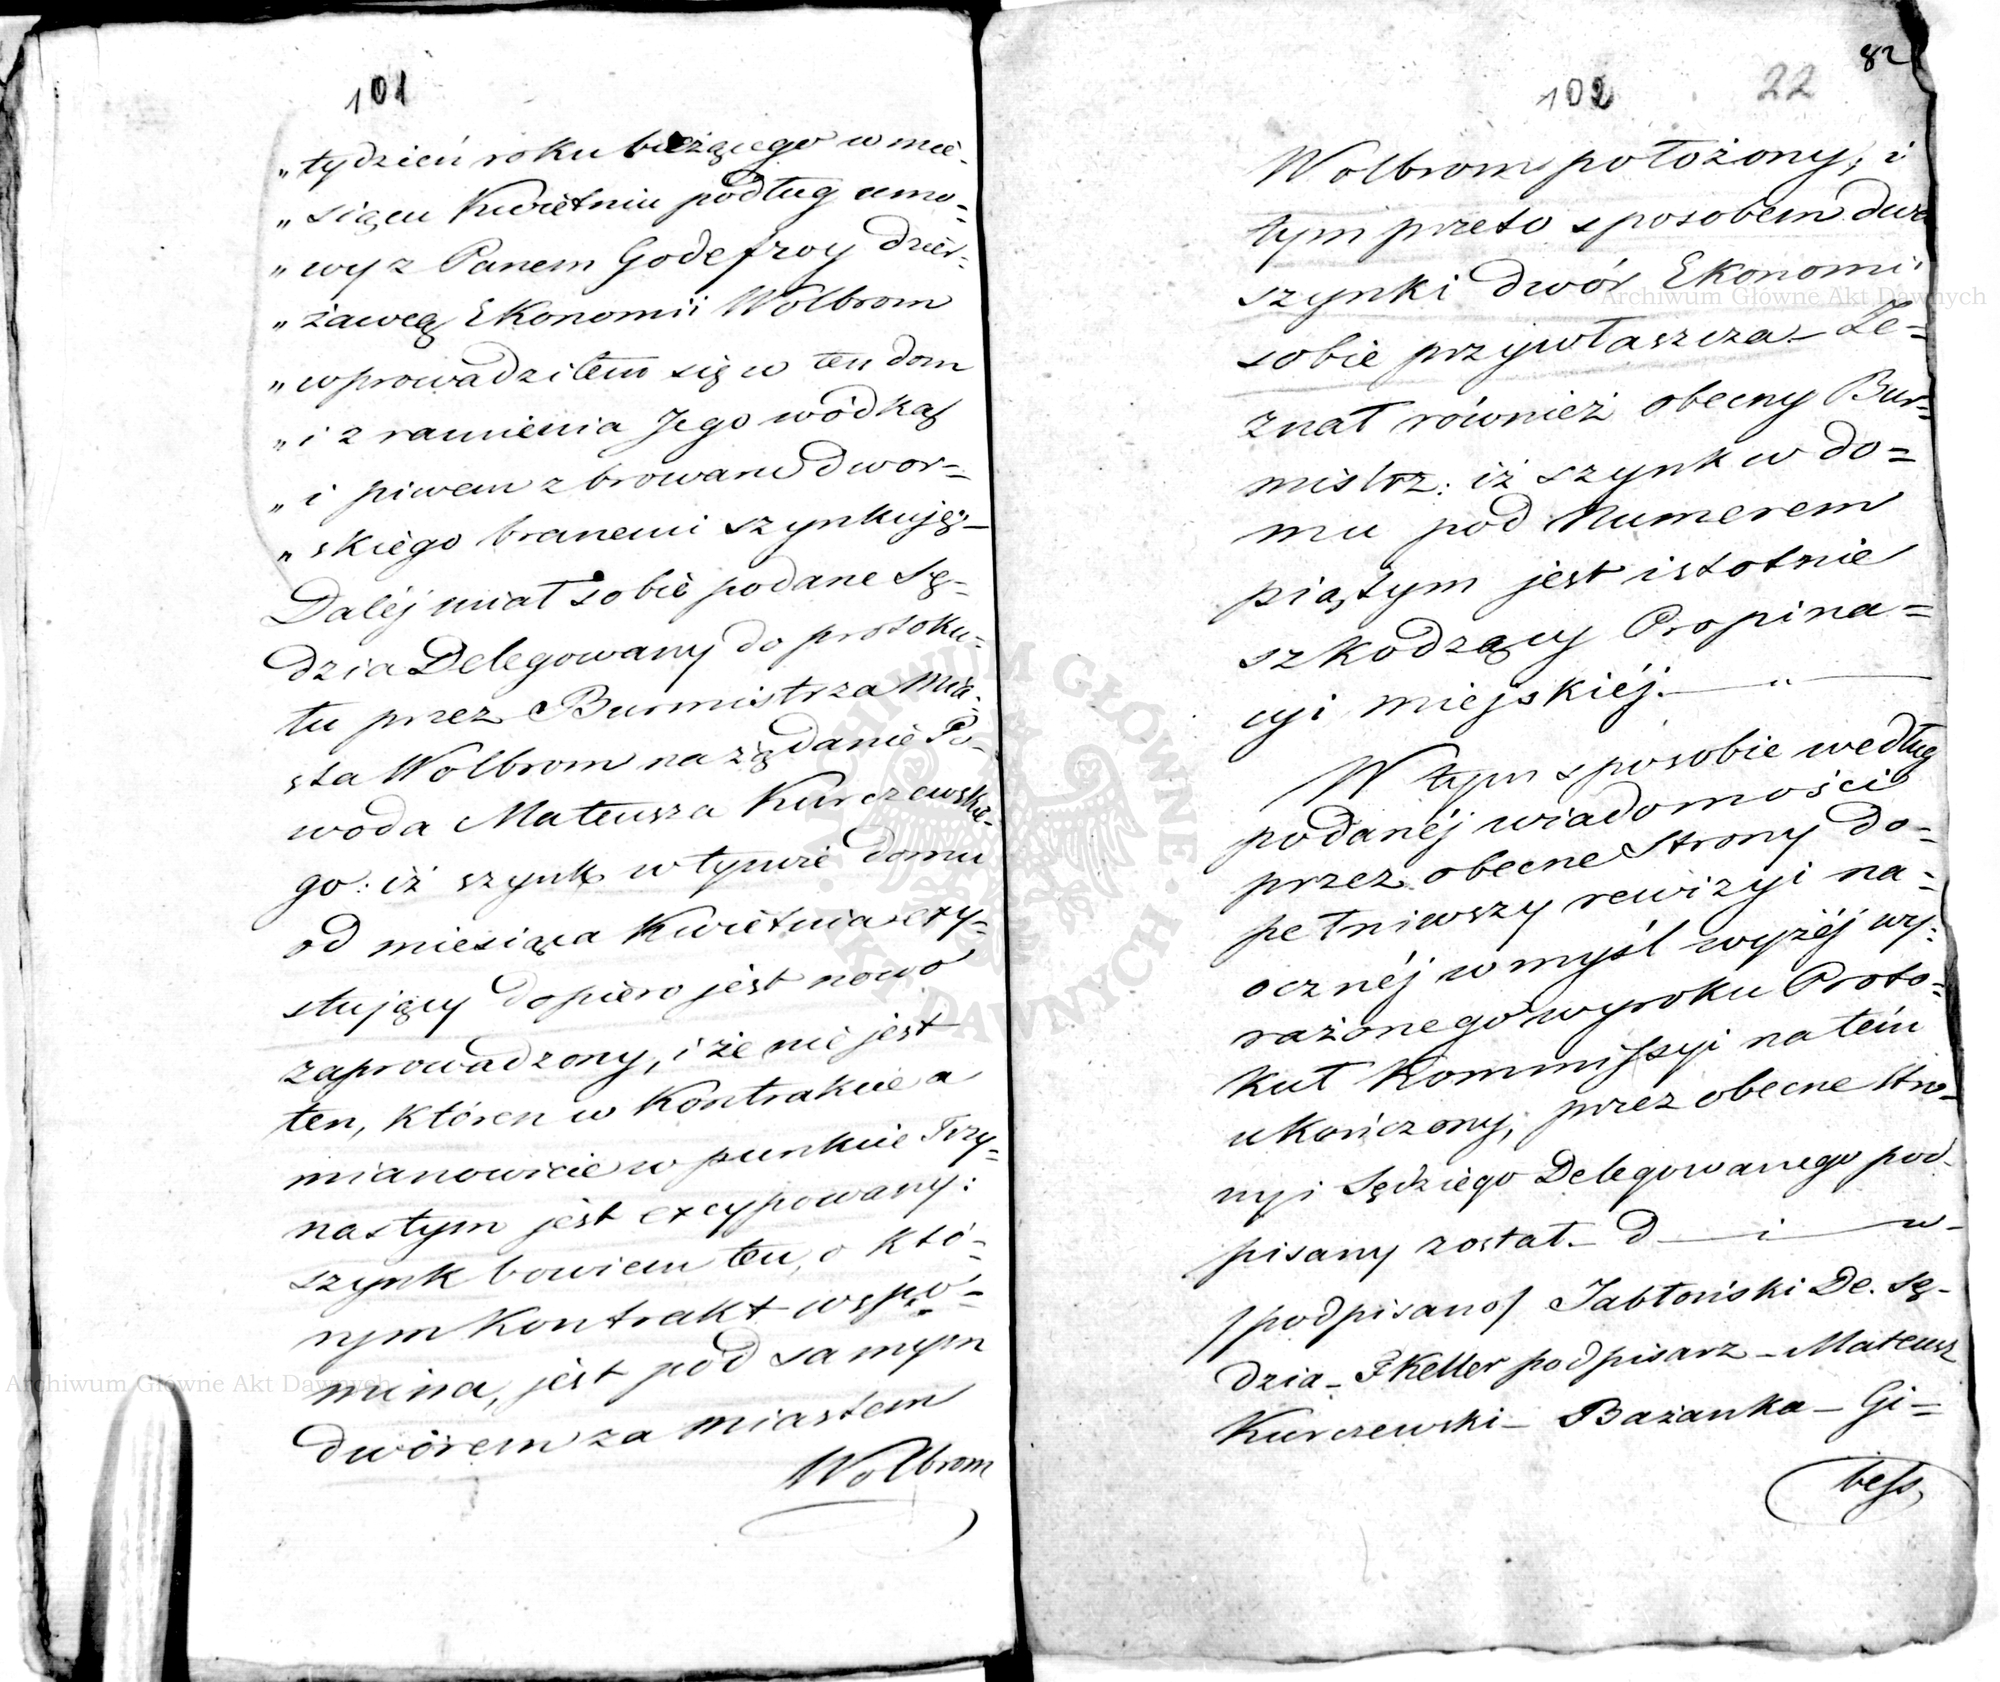 101
„ tydzień roku bieżącego w mie-
„ siącu Kwietniu podług umo=
„ wy z Panem Godefroy dzier-
„ żawcą Ekonomii Wolbrom
„ wprowadziłem się w ten dom
„ i z ramienia Jego wódką
„ i piwem z browaru dwor=
„ skiego branemi szynkuję"—
Daléj miał sobie podane Sę-
dzia Delegowany do protoku-
łu przez Burmistrza Mia-
sta Wolbrom na żądanie Po-
woda Mateusza Kurczewskie-
go: iż szynk w tymże domu
od miesiąca Kwietnia exy-
stujący dopiero jest nowo
zaprowadzony, i że nie jest
ten, któren w Kontrakcie a
mianowicie w punkcie Trzy-
nastym jest excypowany:
szynk bowiem ten, o któ-
rym Kontrakt wspo=
mina, jest pod samym
dworem za miastem
Wolbrom
82
102 22
Wolbrom położony; i
tym przeto sposobem dwa
szynki dwór Ekonomii
sobie przywłaszcza — Ze=
znał również obecny Bur=
mistrz: iż szynk w do=
mu pod Numerem
piątym jest istotnie
szkodzący Propina=
cyi miejskiéj. — " —
W tym sposobie według
podanéj wiadomości
przez obecne Strony do=
pełniwszy rewizyi na=
ocznéj w myśl wyżéj wy=
rażonego wyroku Proto=
kuł Kommissyi na tém
ukończony, przez obecne Stro-
ny i Sędziego Delegowanego pod-
pisany został. — d — i — w —
/podpisano/ Jabłoński De. Sę-
dzia — F Keller podpisarz — Mateusz
Kurczewski — Bażanka — Gi=
bess,
Archiwum Główne Akt Dawnych
Archiwum Główne Akt Dawnych
ARCHIWUM GŁÓWNE AKT DAWNYCH